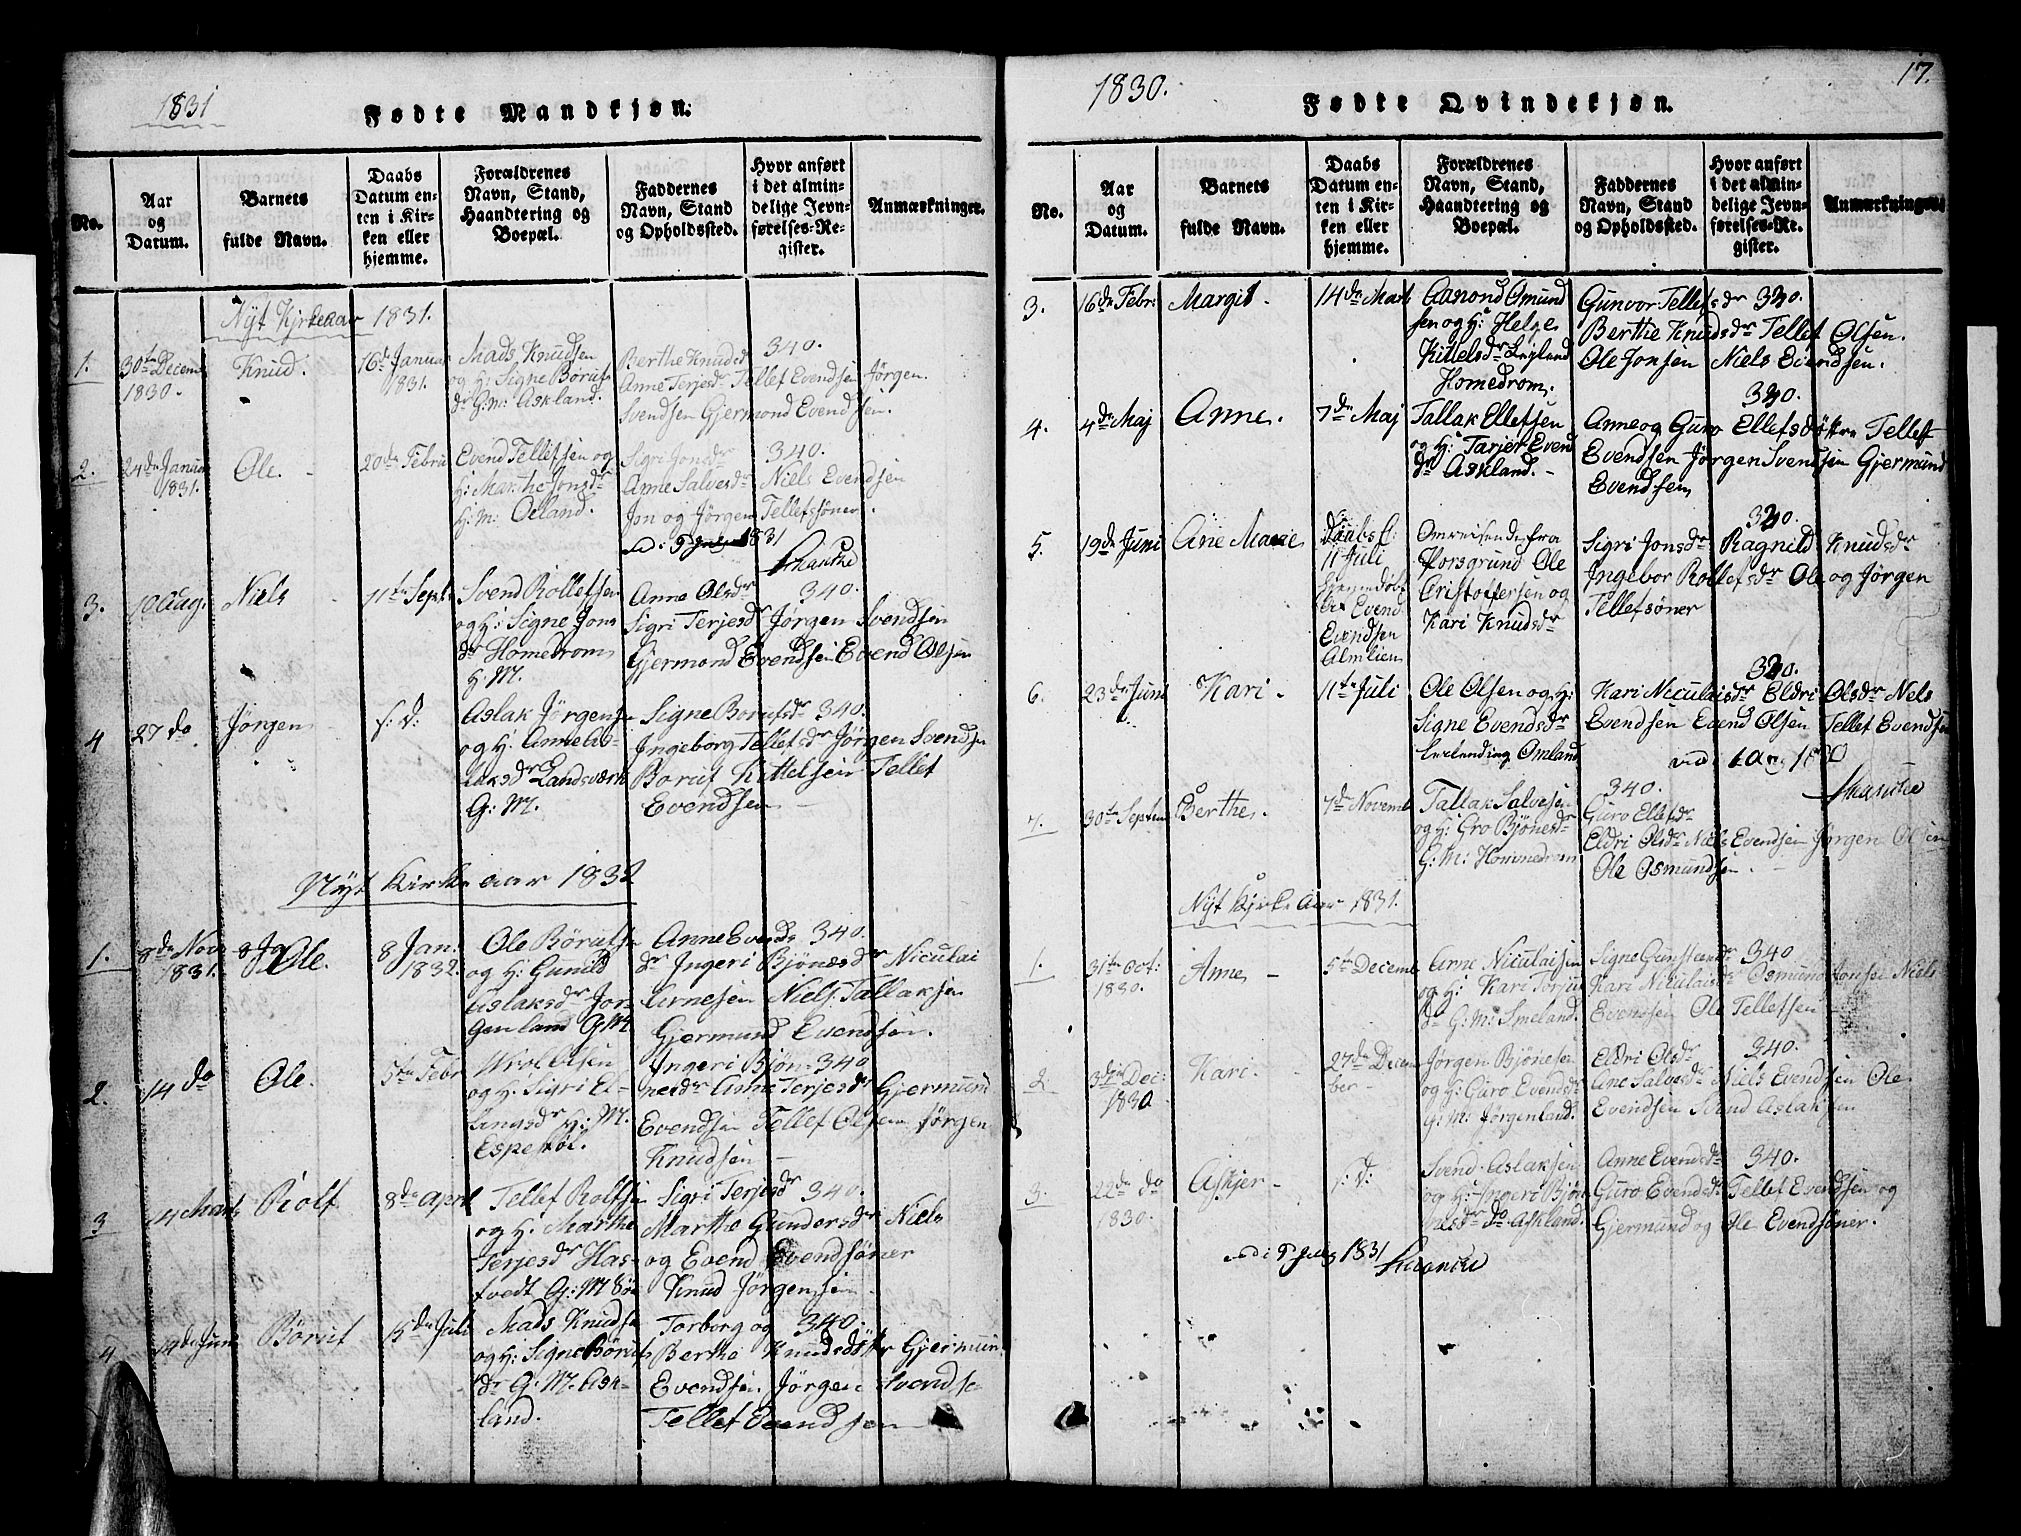 1831
Fødte Mandkjøn.
No.
Aar
og
Datum.
Barnets
fulde Navn.
Daabs
Datum en-
ten i Kir-
ken eller
hjemme.
Forældrenes
Navn, Stand,
Haandtering og
Boepæl.
Faddernes
Navn, Stand
og Opholdssted.
Hvor anført
i det almin-
delige Jevn-
førelses-Re-
gister.
Anmærkninger.
Nyt Kjrkeaar 1831.
1.
30te Decem
1830.
Knud.
16de Januar
1831.
Mads Knudsen
og H: Signe Børufs
dr G: M: Askland.
Berthe Knudsd 340.
Anne Terjesdr Tellef Evendsen Jørgen
Svendsen Gjermond Evendsen.
2.
24de Januar
1831.
Ole.
20de Febru
Evend Tellefsen og
H: Marthe Jonsdr
H: M: Øeland.
Sigri Jonsdr 340.
Anne Salvesdr Niels Evendsen
Jon og Jørgen Tellefsøner.
1831
3.
10 Aug.
Niels
11te Sept:
Svend Rollefsen
og H: Signe Jons
dr Homedrom
H: M.
Anne Olsdr 340.
Sigri Terjesdr Jørgen Svendsen
Gjermond Evendsen Evend Olsen
4
27 do
Jørgen
s: D:
Aslak Jørgens
og H: Anne As-
laksdr Landsværk
G: M.
Signe Borufsdr 340.
Ingeborg Tellefsdr Jørgen Svendsen
Boruf Kittelsen Tellef
Evendsen
Nyt Kirke aar 1832
1.
8de Nov
1831.
Ole.
8 Jan:
1832.
Ole Børufse
og H: Gunild
Aslaksdr Jør-
genland G M.
Anne Evends 340.
dr Ingeri Bjønesdr Niculai
Arnesen Niels Tallaksen
Gjermund Evendsen.
2.
14 do
Ole.
5te Febr
Olsen
og H: Sigri El-
H: M.
Espestøl.
Ingeri Bjøn- 340
nesdr Anne Terjesdr Gjermund
Evendsen Tellef Olsen Jørgen
Knudsen
3
14 Marts
Rolf
8de April
Tellef Rolfsen
og H: Marthe
Terjesdr Has-
tvedt G: M
Sigri Terjesdr 340.
Marthe Gundersdr Niels
og Evend Evendsøner
Knud Jørgensen
4
19de Juni
Børuf
15de Juli
Mads Knudse
og H: Signe Børufs
dr G. M. Ask-
land.
Torborg og 340.
Berthe Knudsdøttr Gjermun
Evendsen Jørgen Svendse
Tellef Evendsen
1830.
17.
Fødte Qvindekjøn.
No.
Aar
og
Datum.
Barnets
fulde Navn.
Daabs
Datum en-
ten i Kir-
ken eller
hjemme.
Forældrenes
Navn, Stand,
Haandtering og
Boepæl.
Faddernes
Navn, Stand
og Opholdssted.
Hvor anført
i det almin-
delige Jevn-
førelses-Re-
gister.
Anmærkninger
3.
16de Febr:
Margit.
14de Marts
Aanond Omund
sen og H: Helge
Kittelsdr
Homedrom.
Gunvor Tellefsdr 320.
Berthe Knudsdr Tellef Olsen.
Ole Jonsen Niels Evendsen.
4.
4de Maj
Anne.
7de Maj
Tallak Ellefsen
og H: Tarjer Evend
dr Askland.
320.
Anne og Guro Ellefsdøttre Tellef
Evendsen Jørgen Svendsen Gjermund
Evendsen
5.
19de Juni
Ane Marie
Daabs
11 Juli
af Evend
Evendsen
Almlien
Omreisende fra
Porsgrund Ole
Cristoffersen og
Kari Knudsdr
320.
Sigri Jonsdr Ragnild Knudsdr
Ingebor Rollefsdr Ole og Jørgen
Tellefsøner
6.
23de Juni
Kari.
11te Juli
Ole Olsen og H:
Signe Evendsdr
Omland
320.
Kari Niculaisdr Eldri Olsdr Nels
Evendsen Evend Olsen Tellef Evendsen
1830
7.
30te Septem
Berthe.
7de Novemb
Tallak Salvesen
og H: Gro Bjønesdr
G: M: Hommedrom
340.
Guro Ellefsdr
Eldri Olsdr Niels Evendsen Jørgen Olsen
Ole Osmundsen.
Nyt Kjrke Aar 1831.
1.
31te Oct:
1830.
Anne
5te Decemb
Arne Niculaisen
og H: Kari Torjus
dr G: M: Smeland.
340
Kari Niculaisdr Osmund Jonsen Niels
Evendsen Ole Tellefsen
2.
3die Dec:
1830
Kari.
27de Decem
ber
Jørgen Bjønesen
og H: Guro Evendsdr
G: M: Jørgenland.
Eldri Olsdr 340.
Ane Salvesdr Niels Evendsen Ole
Evendsen Svend Aslaksen
3.
22de do
1830.
Askjer
s: D:
Svend Aslaksen
og H: Ingeri Bjøn-
nesdr do Askland.
Anne Evendsdr 340.
Guro Evendsdr Tellef Evendsen og
Gjermund og Ole Evendsøner.
1831